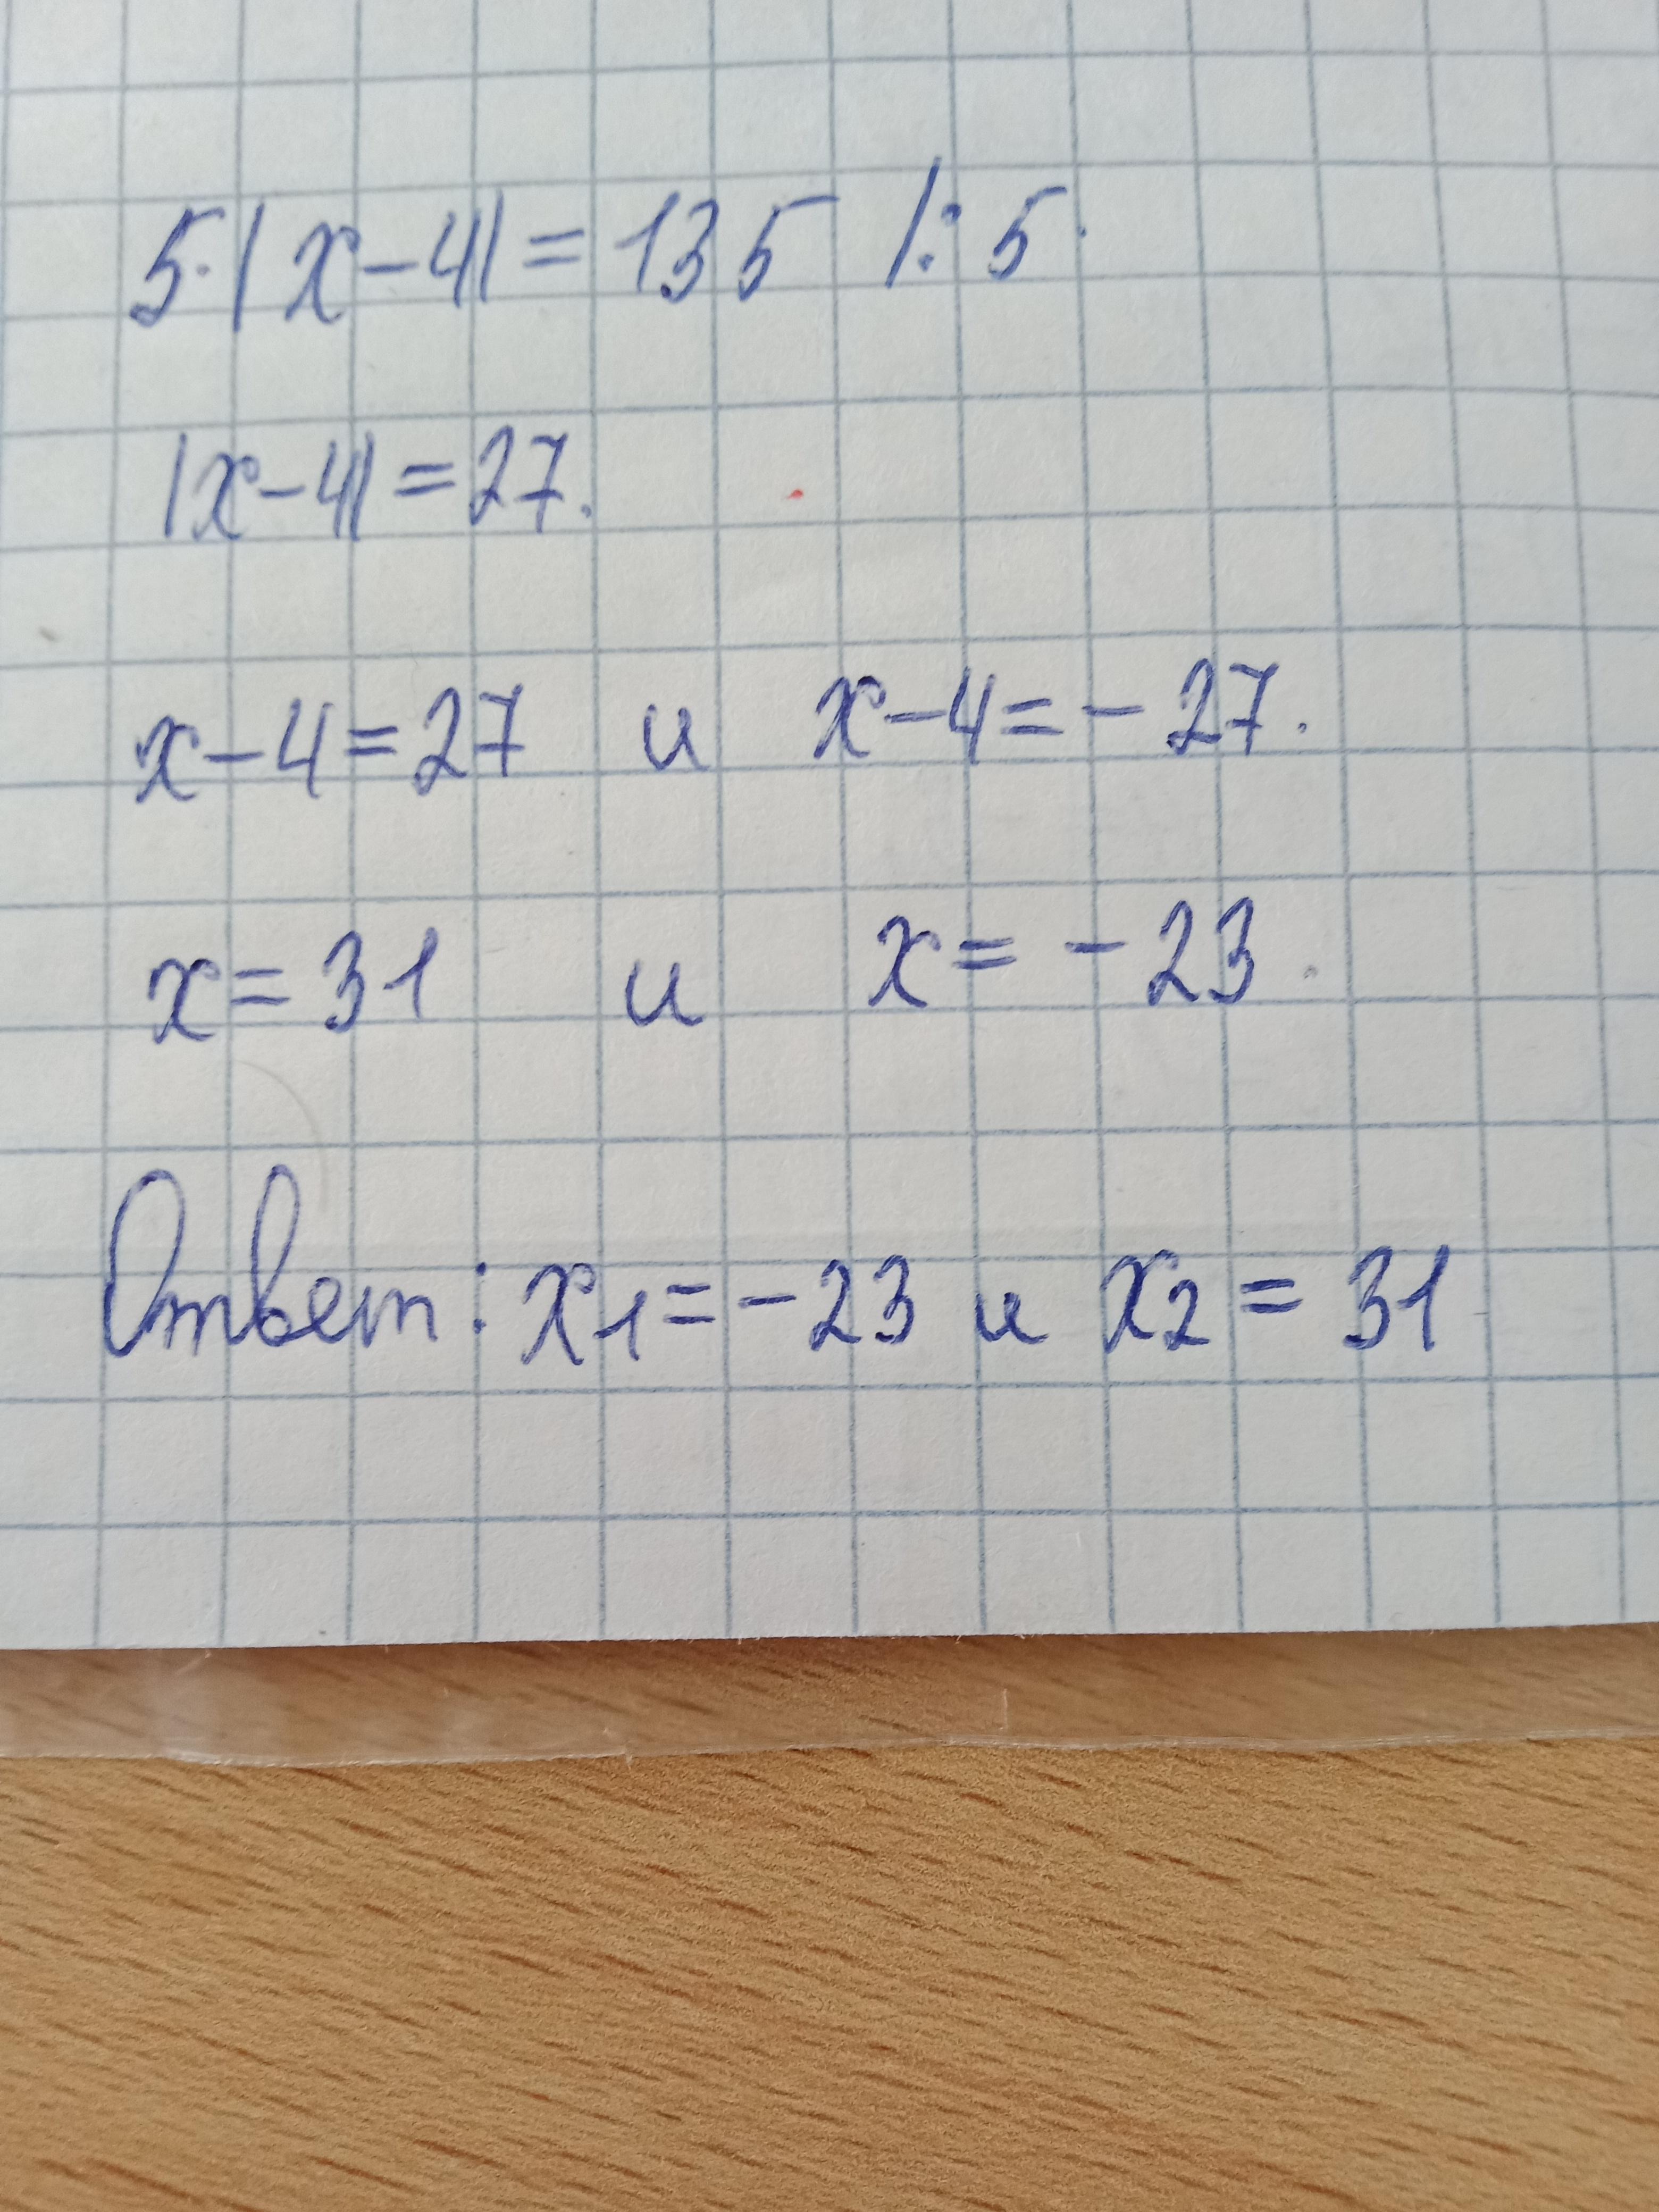 5·|x-4|=135 /:5
|x-4|=27.
x-4=27 и x-4=-27.
x=31 и x=-23.
Ответ: x1=-23 и x2=31